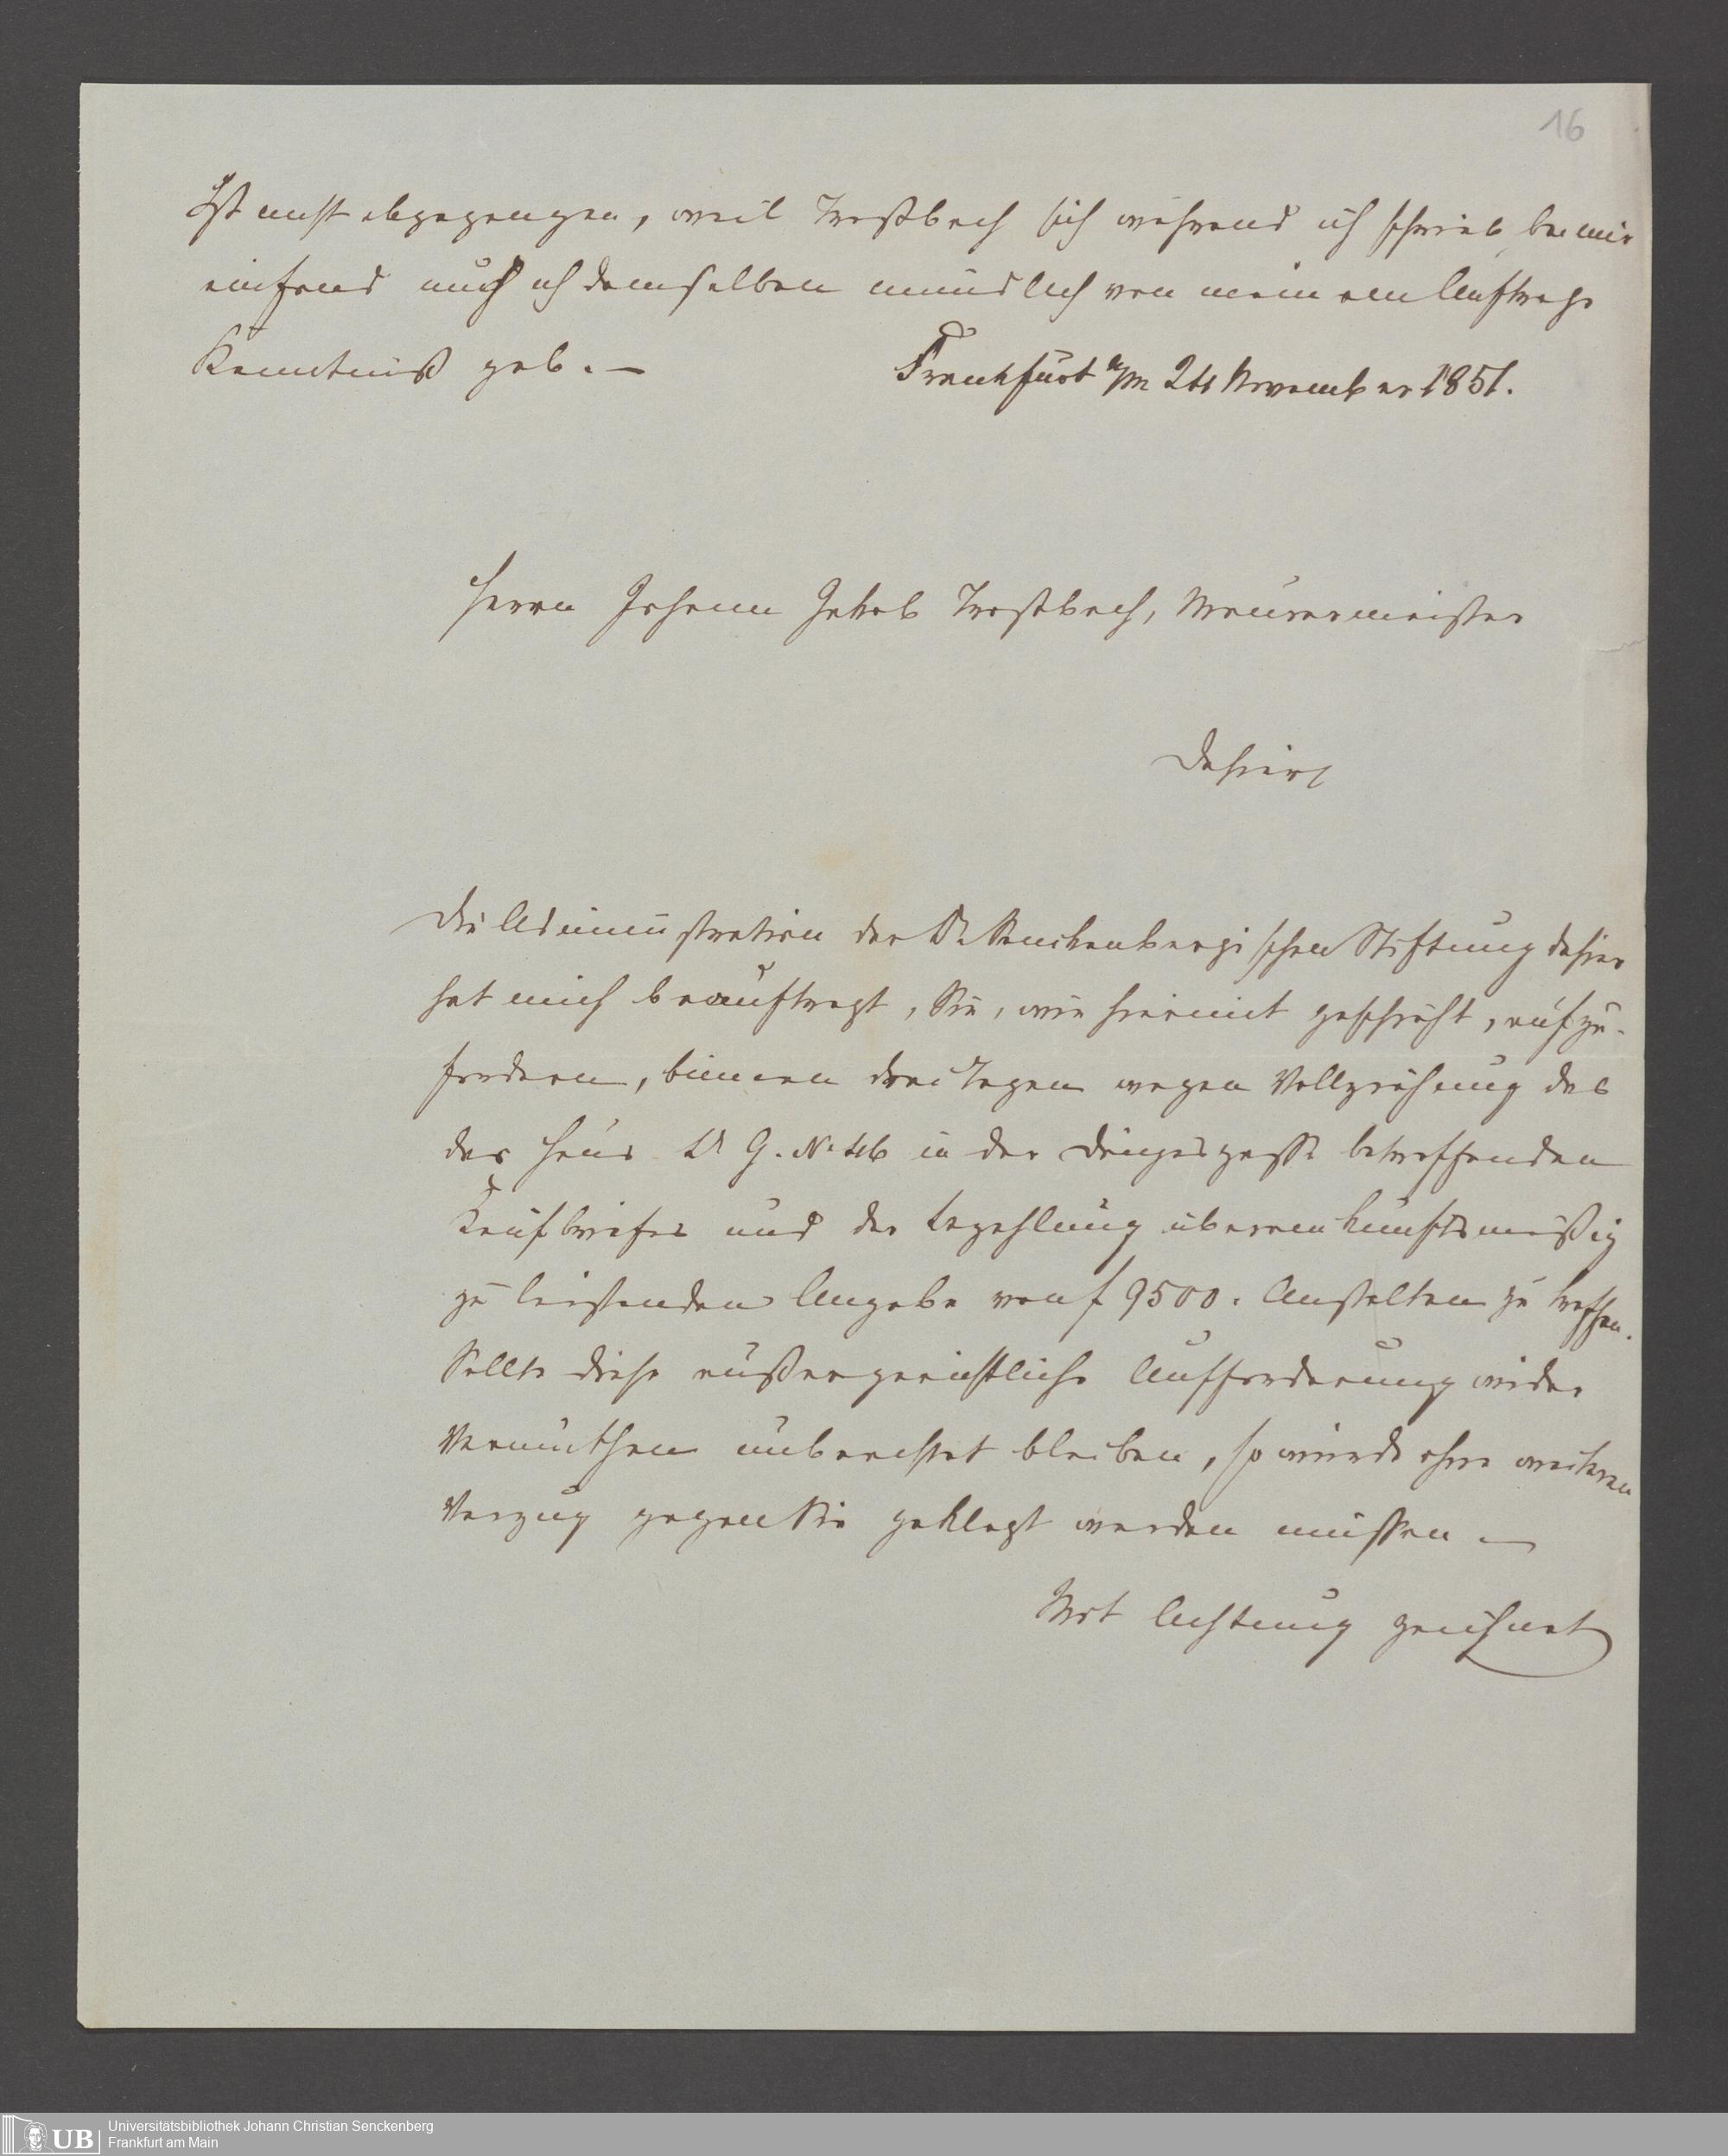 16
Ist nicht abgegangen, weil Trostbach sich während ich schrieb bei mir
einfand und ich demselben mündlich von meinem Auftrage
Kenntniß gab. —
Frankfurt a/M 24 November 1851.
Herrn Johann Jakob Trostbach, Maurermeister
dahier
Die Administration der Dr Senckenbergischen Stiftung dahier
hat mich beauftragt, Sie, wie hiermit geschieht, aufzu-
fordern, binnen drei Tagen wegen Vollziehung des
das Haus Lit G. No in der Döngesgasse betreffenden
Kaufbriefes und der Bezahlung übereinkunftsmäßig
zu leistenden Angabe von f 9500. Anstalten zu treffen.
Sollte diese außergerichtliche Aufforderung wider
Vermuthen unbeachtet bleiben, so würde ohne weiteren
Verzug gegen Sie geklagt werden müssen. —
Mit Achtung zeichnet
UB
Universitätsbibliothek Johann Christian Senckenberg
Frankfurt am Main